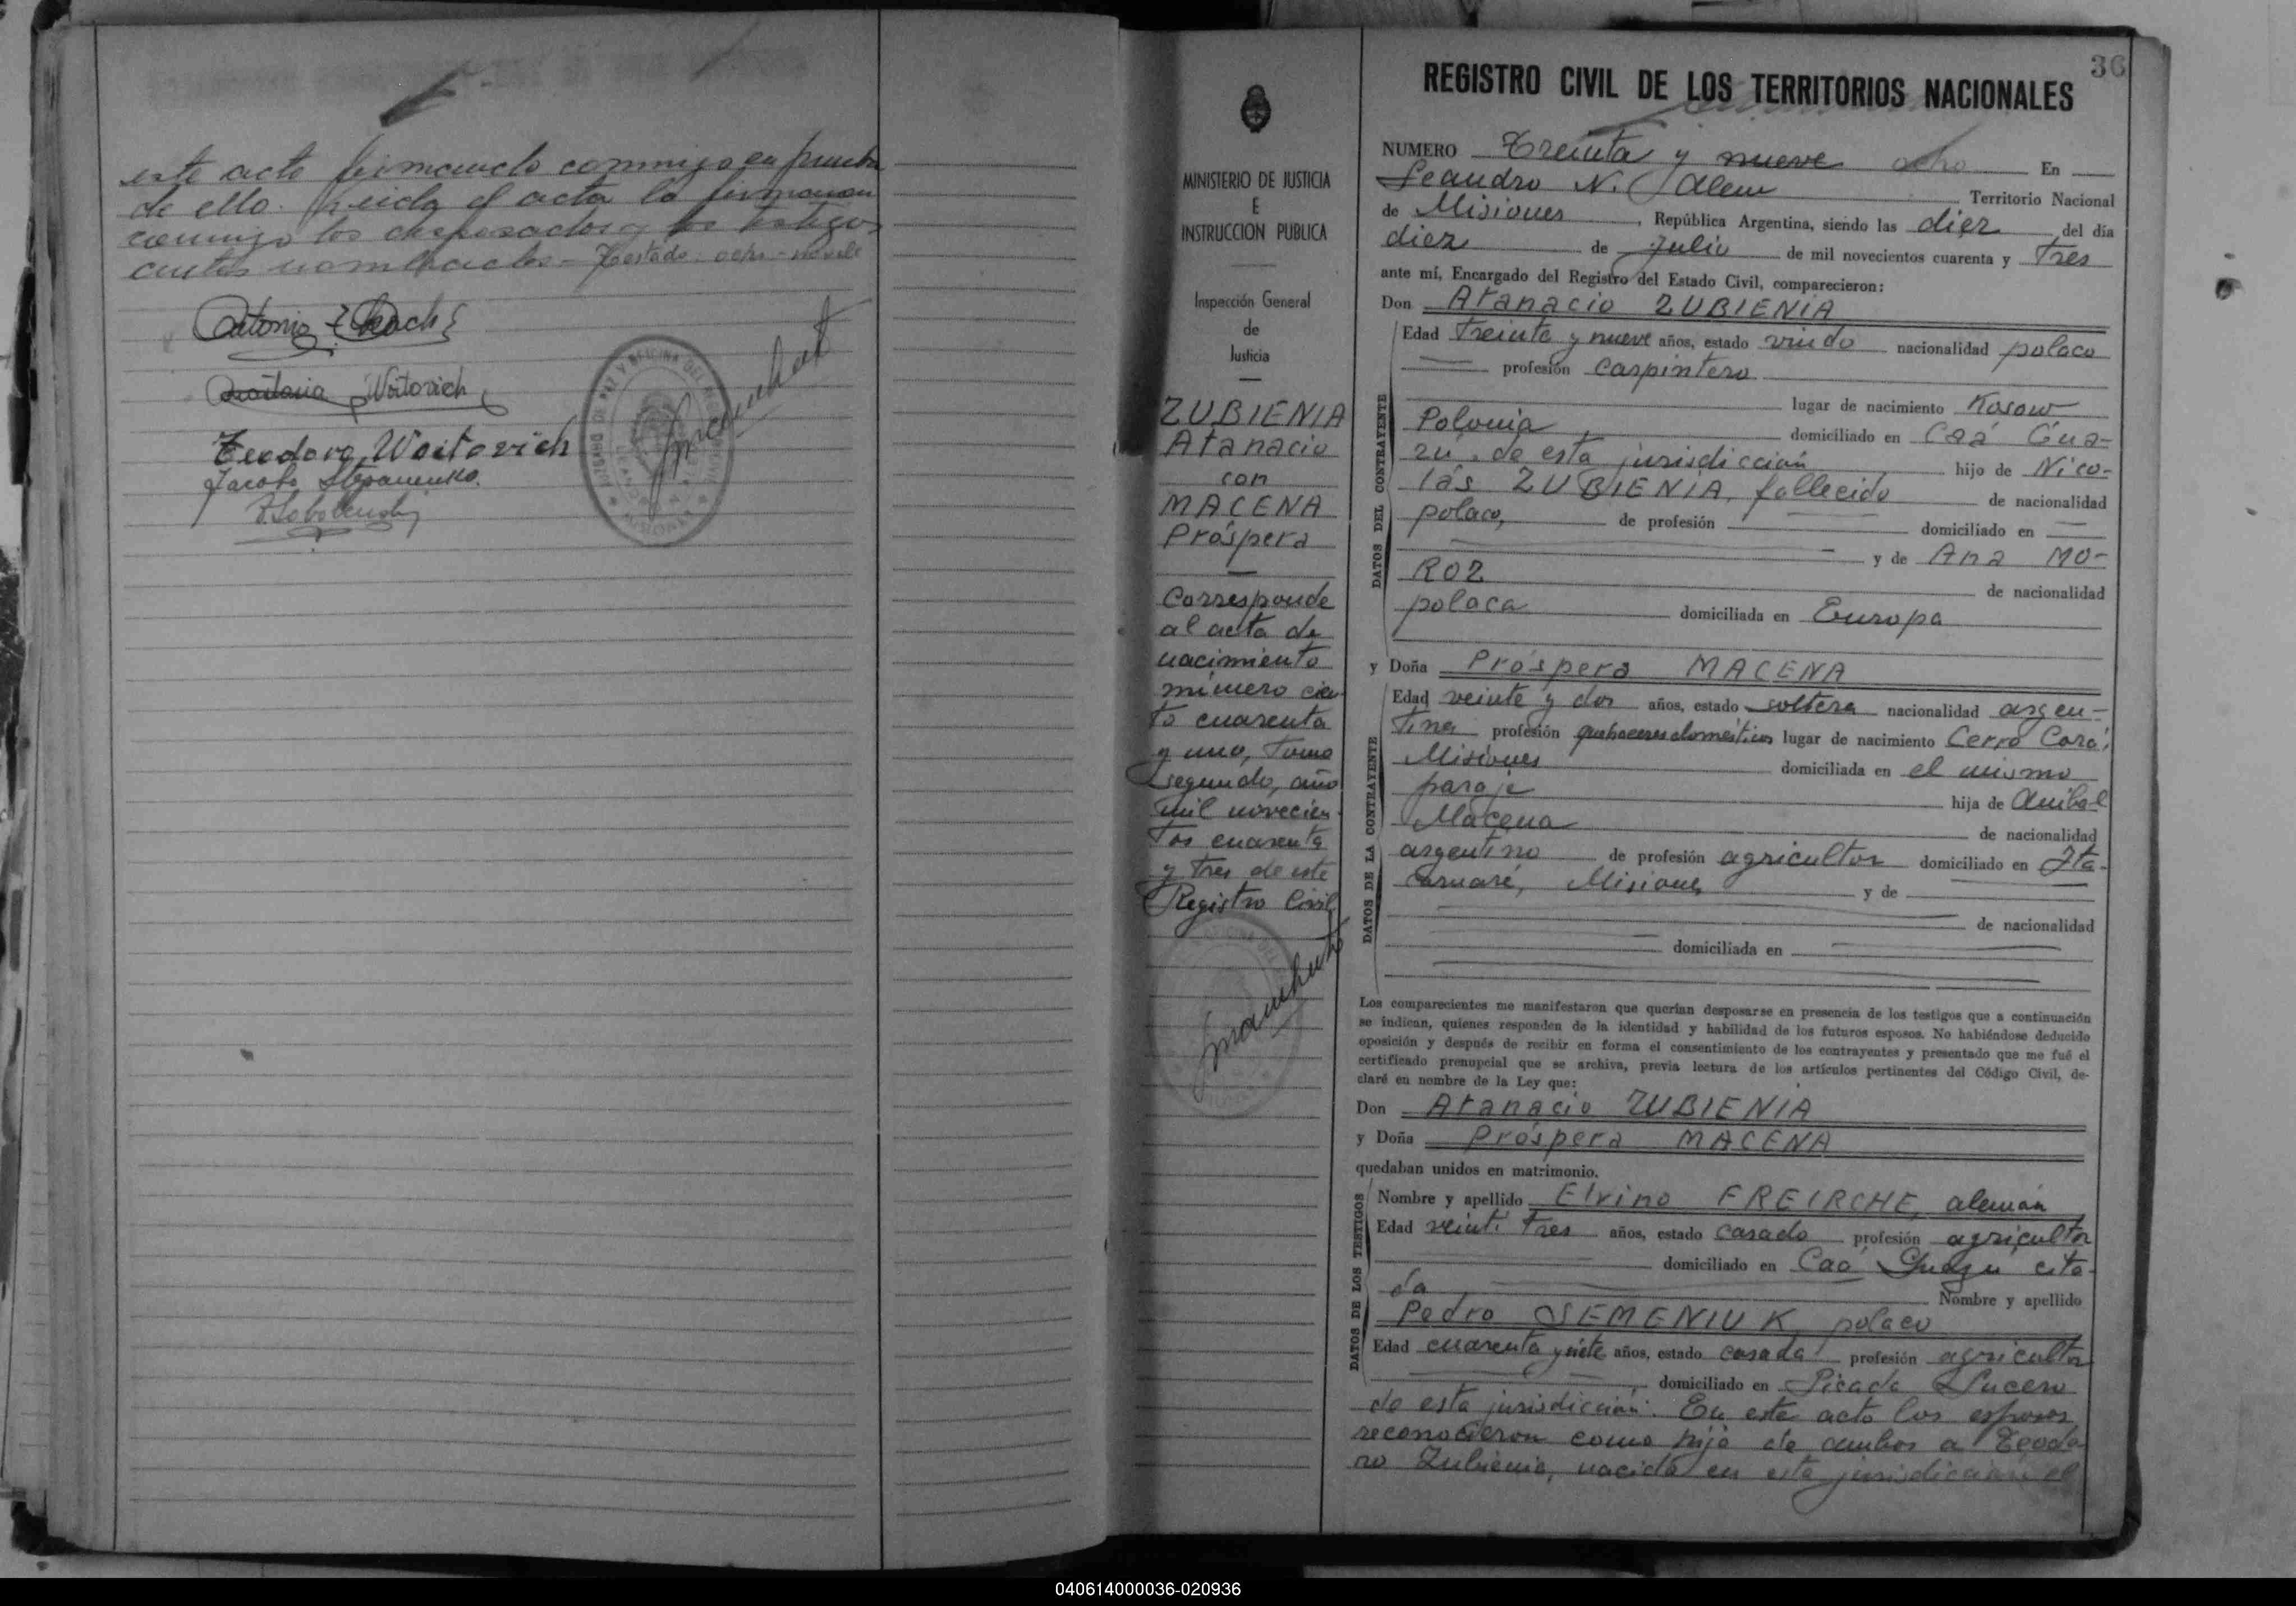 este acto firmando conmigo en prueba
de ello. Leida el acta la firmaron
conmigo los desposados y los testigos
antes nombrados - Testado: ocho - 
Antonio
Woitovich
Teodoro Woitovich
Jacobo Stepanenko.
JUZGADO DE PAZ Y OFICINA DEL REGISTRO CIVIL
MISIONES
36
MINISTERIO DE JUSTICIA
E
INSTRUCCION PUBLICA
Inspección General
de
Justicia
ZUBIENIA
Atanacio
con
MACENA
Próspera
Corresponde
al acta de
nacimiento
número cien-
to cuarenta
y uno, Tomo
segundo, año
mil novecien-
tos cuarenta
y tres de este
Registro Civil
REGISTRO CIVIL DE LOS TERRITORIOS NACIONALES
NUMERO Treinta y nueve ocho En
Leandro N. Alem Territorio Nacional
de Misiones, República Argentina, siendo las diez del día
diez de Julio de mil novecientos cuarenta y Tres
ante mí, Encargado del Registro del Estado Civil, comparecieron:
Don Atanacio ZUBIENIA
DATOS DEL CONTRAYENTE
Edad treinta y nueve años, estado viudo nacionalidad polaco
profesión carpintero
lugar de nacimiento Kosow
Polonia, domiciliado en Caá Gua-
zú, de esta jurisdicción hijo de Nico-
lás ZUBIENIA, fallecido de nacionalidad
polaco, de profesión domiciliado en
y de Ana MO-
ROZ de nacionalidad
polaca domiciliada en Europa
y Doña Próspera MACENA
DATOS DE LA CONTRAYENTE
Edad veinte y dos años, estado soltera nacionalidad argen-
tina profesión quehaceres domésticos lugar de nacimiento Cerro Corá,
Misiones domiciliada en el mismo
paraje hija de Anibal
Macena de nacionalidad
argentino de profesión agricultor domiciliado en Ita-
caruaré, Misiones y de
de nacionalidad
domiciliada en
Los comparecientes me manifestaron que querían desposarse en presencia de los testigos que a continuación
se indican, quienes responden de la identidad y habilidad de los futuros esposos. No habiéndose deducido
oposición y después de recibir en forma el consentimiento de los contrayentes y presentado que me fué el
certificado prenupcial que se archiva, previa lectura de los artículos pertinentes del Código Civil, de-
claré en nombre de la Ley que:
Don Atanacio ZUBIENIA
y Doña Próspera MACENA
quedaban unidos en matrimonio.
DATOS DE LOS TESTIGOS
Nombre y apellido Elvino FREIRCHE, alemán
Edad veinti tres años, estado casado profesión agricultor
domiciliado en Caá Guazú cita-
da Nombre y apellido
Pedro SEMENIUK polaco
Edad cuarenta y siete años, estado casado profesión agricultor
domiciliado en Picada Lucero
de esta jurisdicción. En este acto los esposos
reconocieron como hijo de ambos a Teodo-
ro Zubienia, nacido en esta jurisdicción el
040614000036-020936